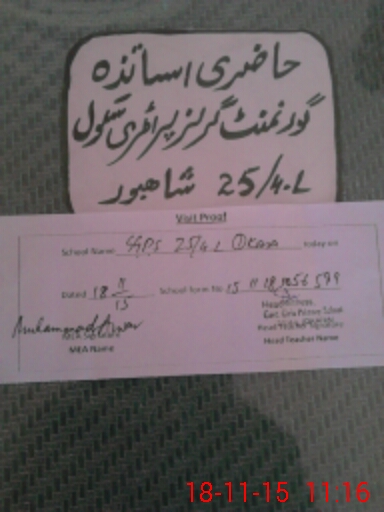 حاضری اساتذہ
گورنمنٹ گرلز پرائمری سکول
25/4.L شاھبور
Visit Proof
School Name GGPS 25/4L Okara today on
Dated 18 11/15 School form No 15 11 18
MEA Signature
MEA Name
Headmistress
Govt. Girls Primary School
Head Teacher Signature
Head Teacher Name
18-11-15 11:16